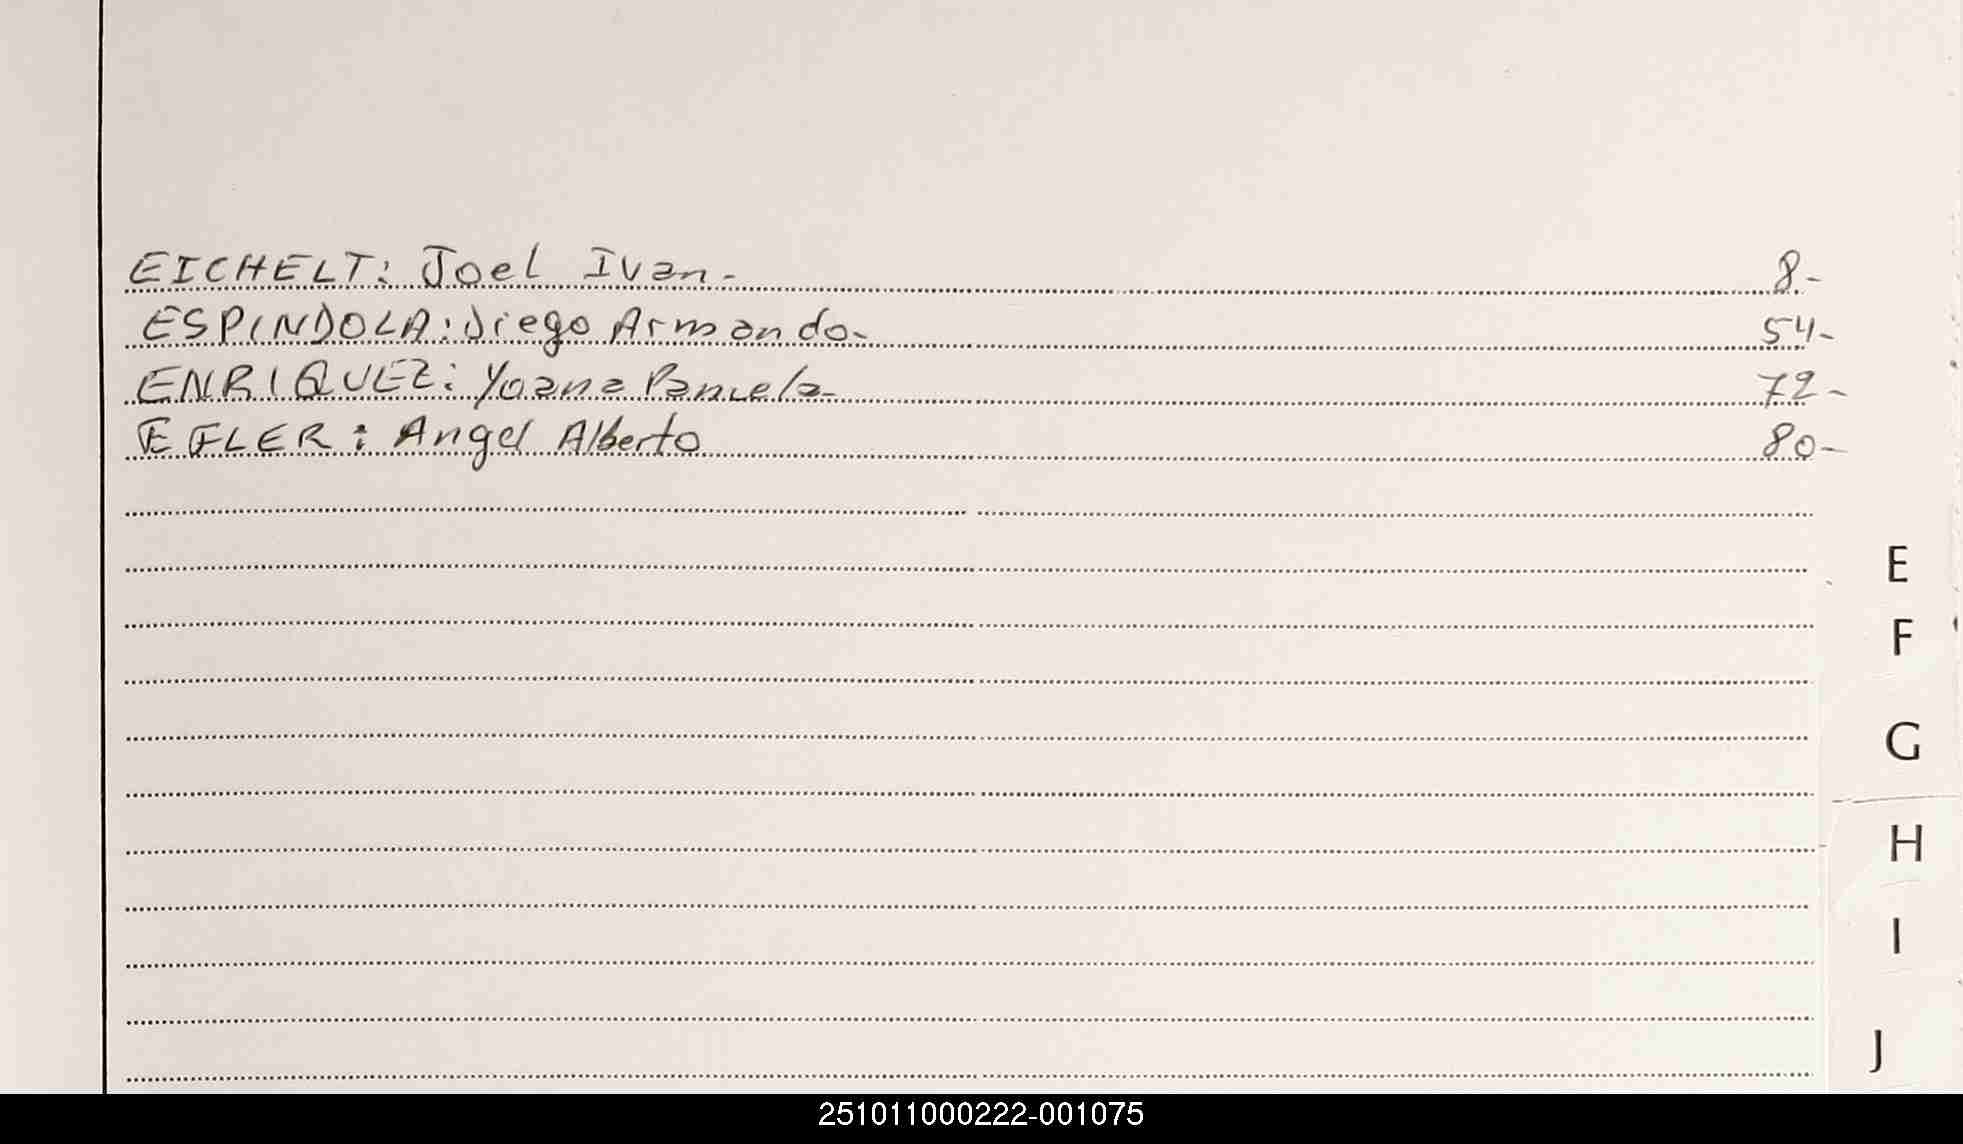 EICHELT: Joel Ivan.- 8.-
ESPINDOLA: Diego Armando.- 54-
ENRIQUEZ: Yoana Pamela- 72-
EFLER: Angel Alberto 80-
E
F
G
H
I
J
251011000222-001075